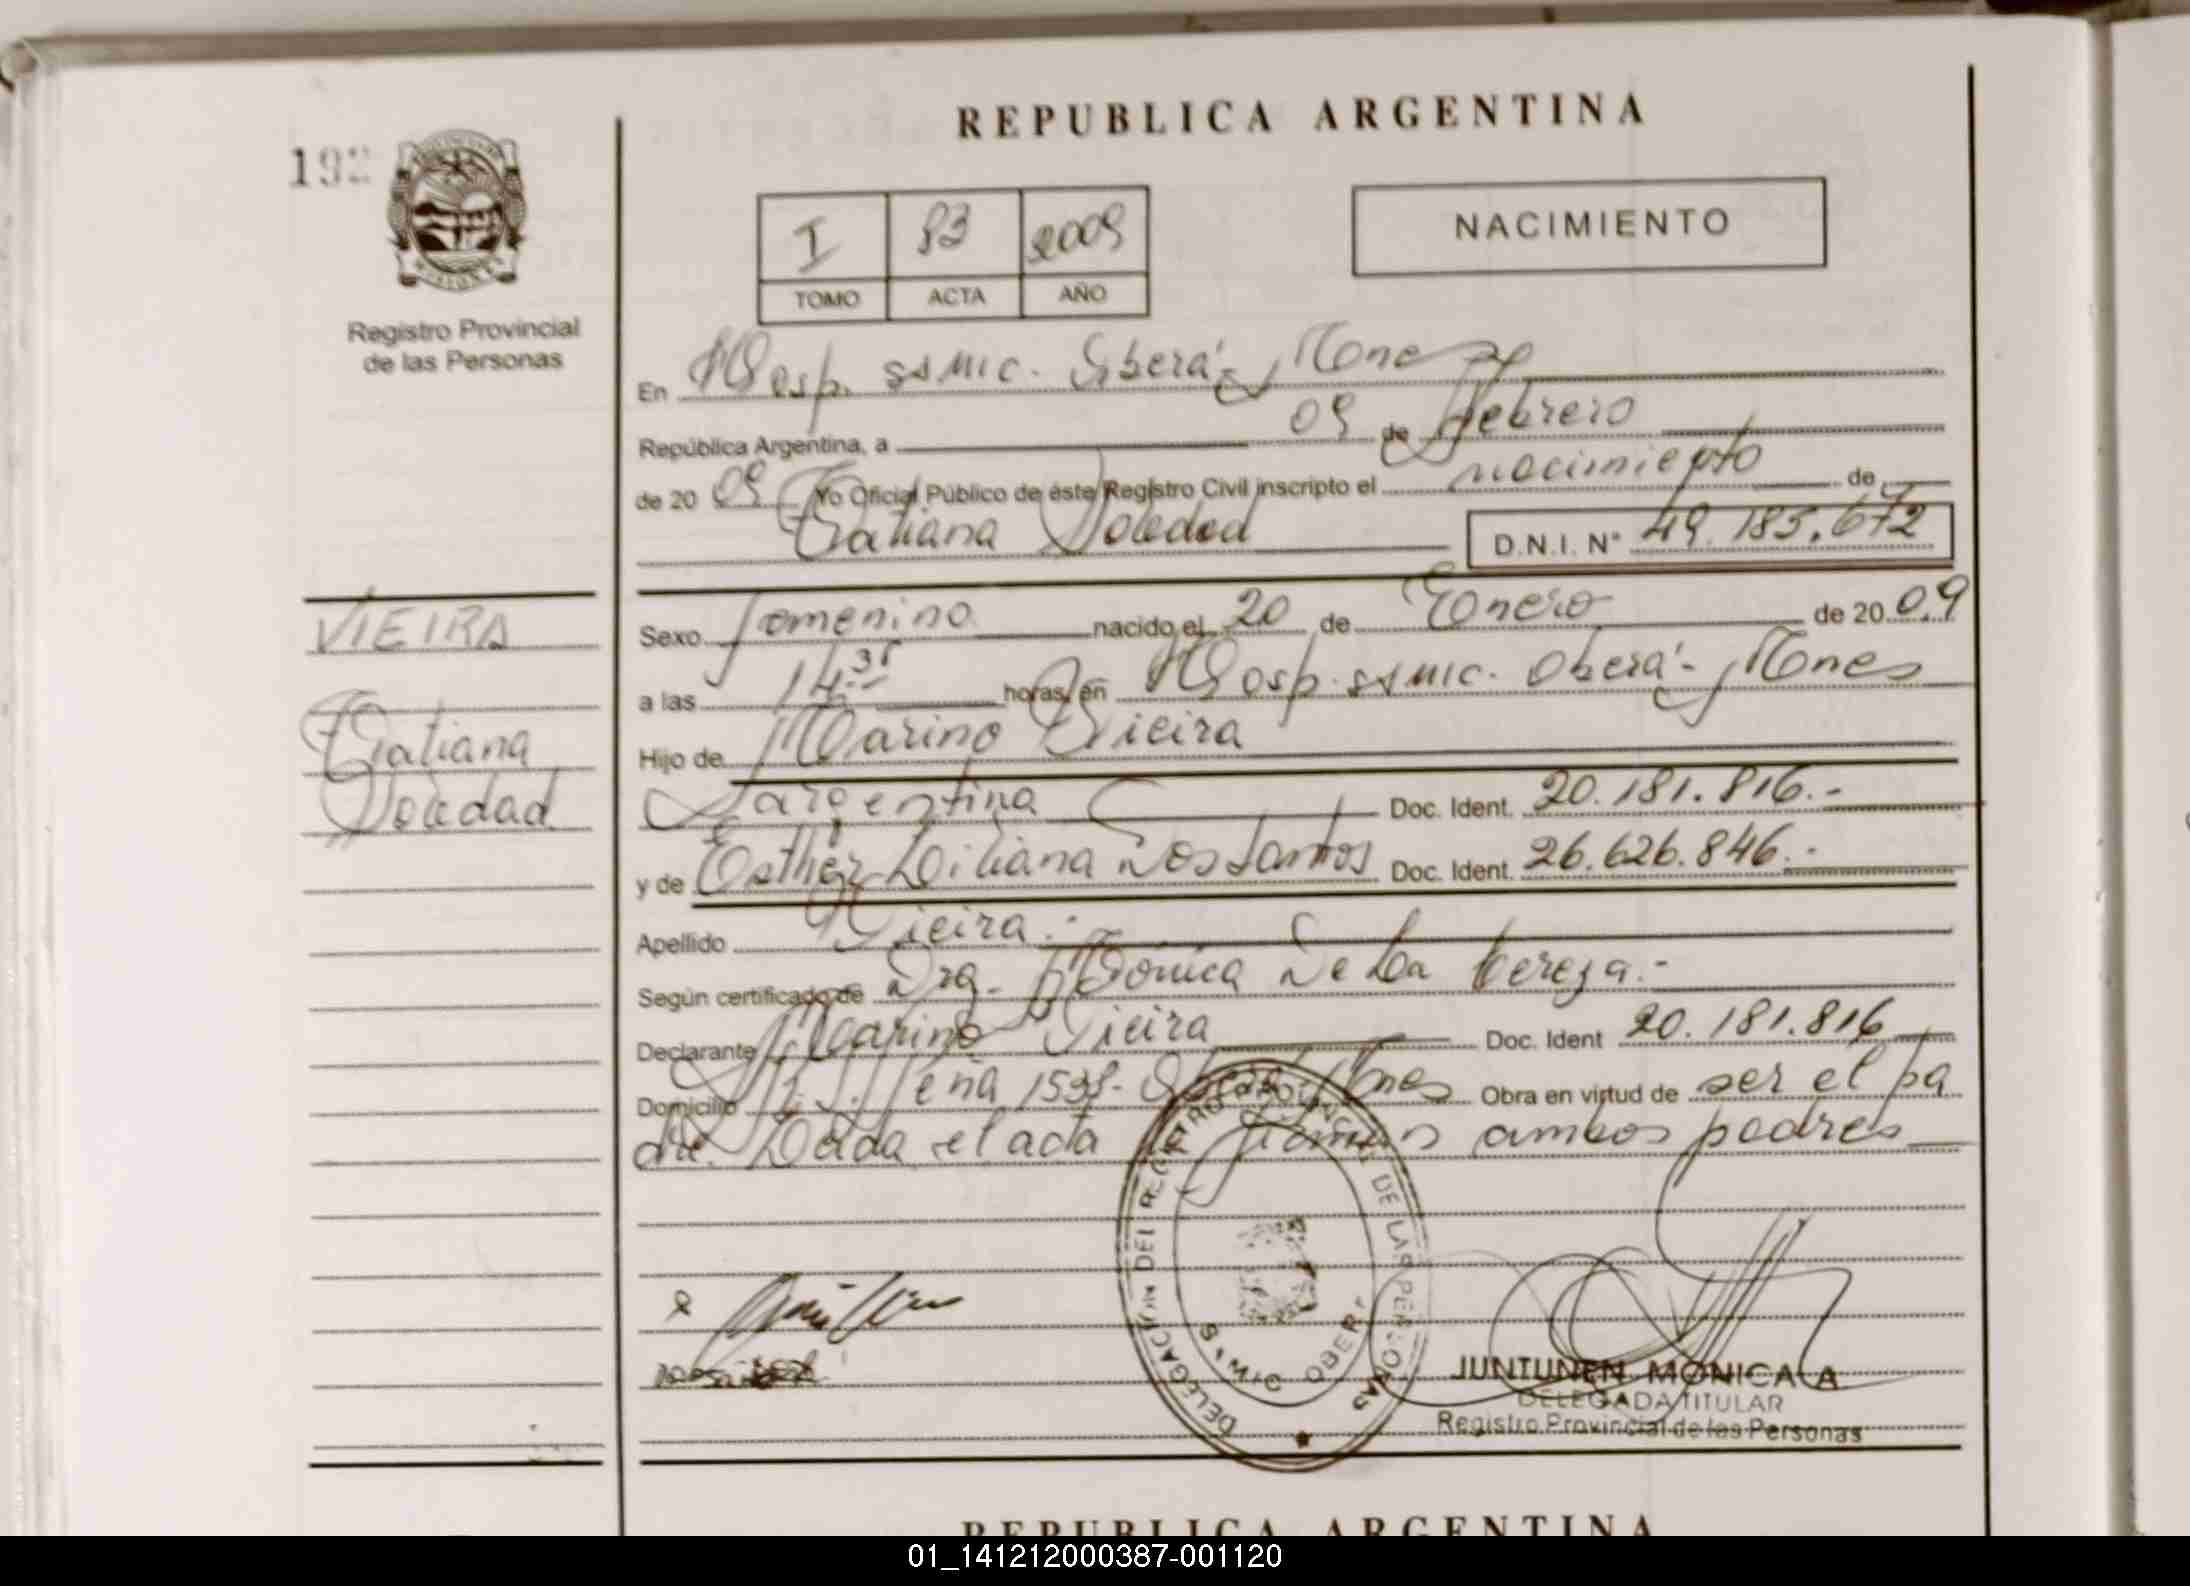 REPUBLICA ARGENTINA
192
I 83 2009
TOMO ACTA AÑO
NACIMIENTO
Registro Provincial
de las Personas
En Hosp. SAMIC. Oberá - Mnes
República Argentina, a 09 de Febrero
de 20 09 Yo Oficial Público de éste Registro Civil inscripto el nacimiento de
Tatiana Soledad D.N.I. N° 49.185.672
VIEIRA
Tatiana
Soledad
Sexo femenino nacido el 20 de Enero de 20 09
a las 14 35 horas, en Hosp. SAMIC. Oberá - Mnes
Hijo de Marino Vieira
argentina Doc. Ident. 20.181.816.-
y de Esther Liliana Dos Santos Doc. Ident. 26.626.846.-
Apellido Vieira.-
Según certificado de Dra. Mónica De La
Declarante Marino Vieira Doc. Ident 20.181.816
Domicilio Peña Mnes Obra en virtud de ser el pa
dre. Leida el acta firman ambos padres
DELEGACION DEL REGISTRO PROVINCIAL DE LAS PERSONAS
SAMIC OBERA
JUNTUNEN MONICA A
DELEGADA TITULAR
Registro Provincial de las Personas
REPUBLICA ARGENTINA
01_141212000387-001120